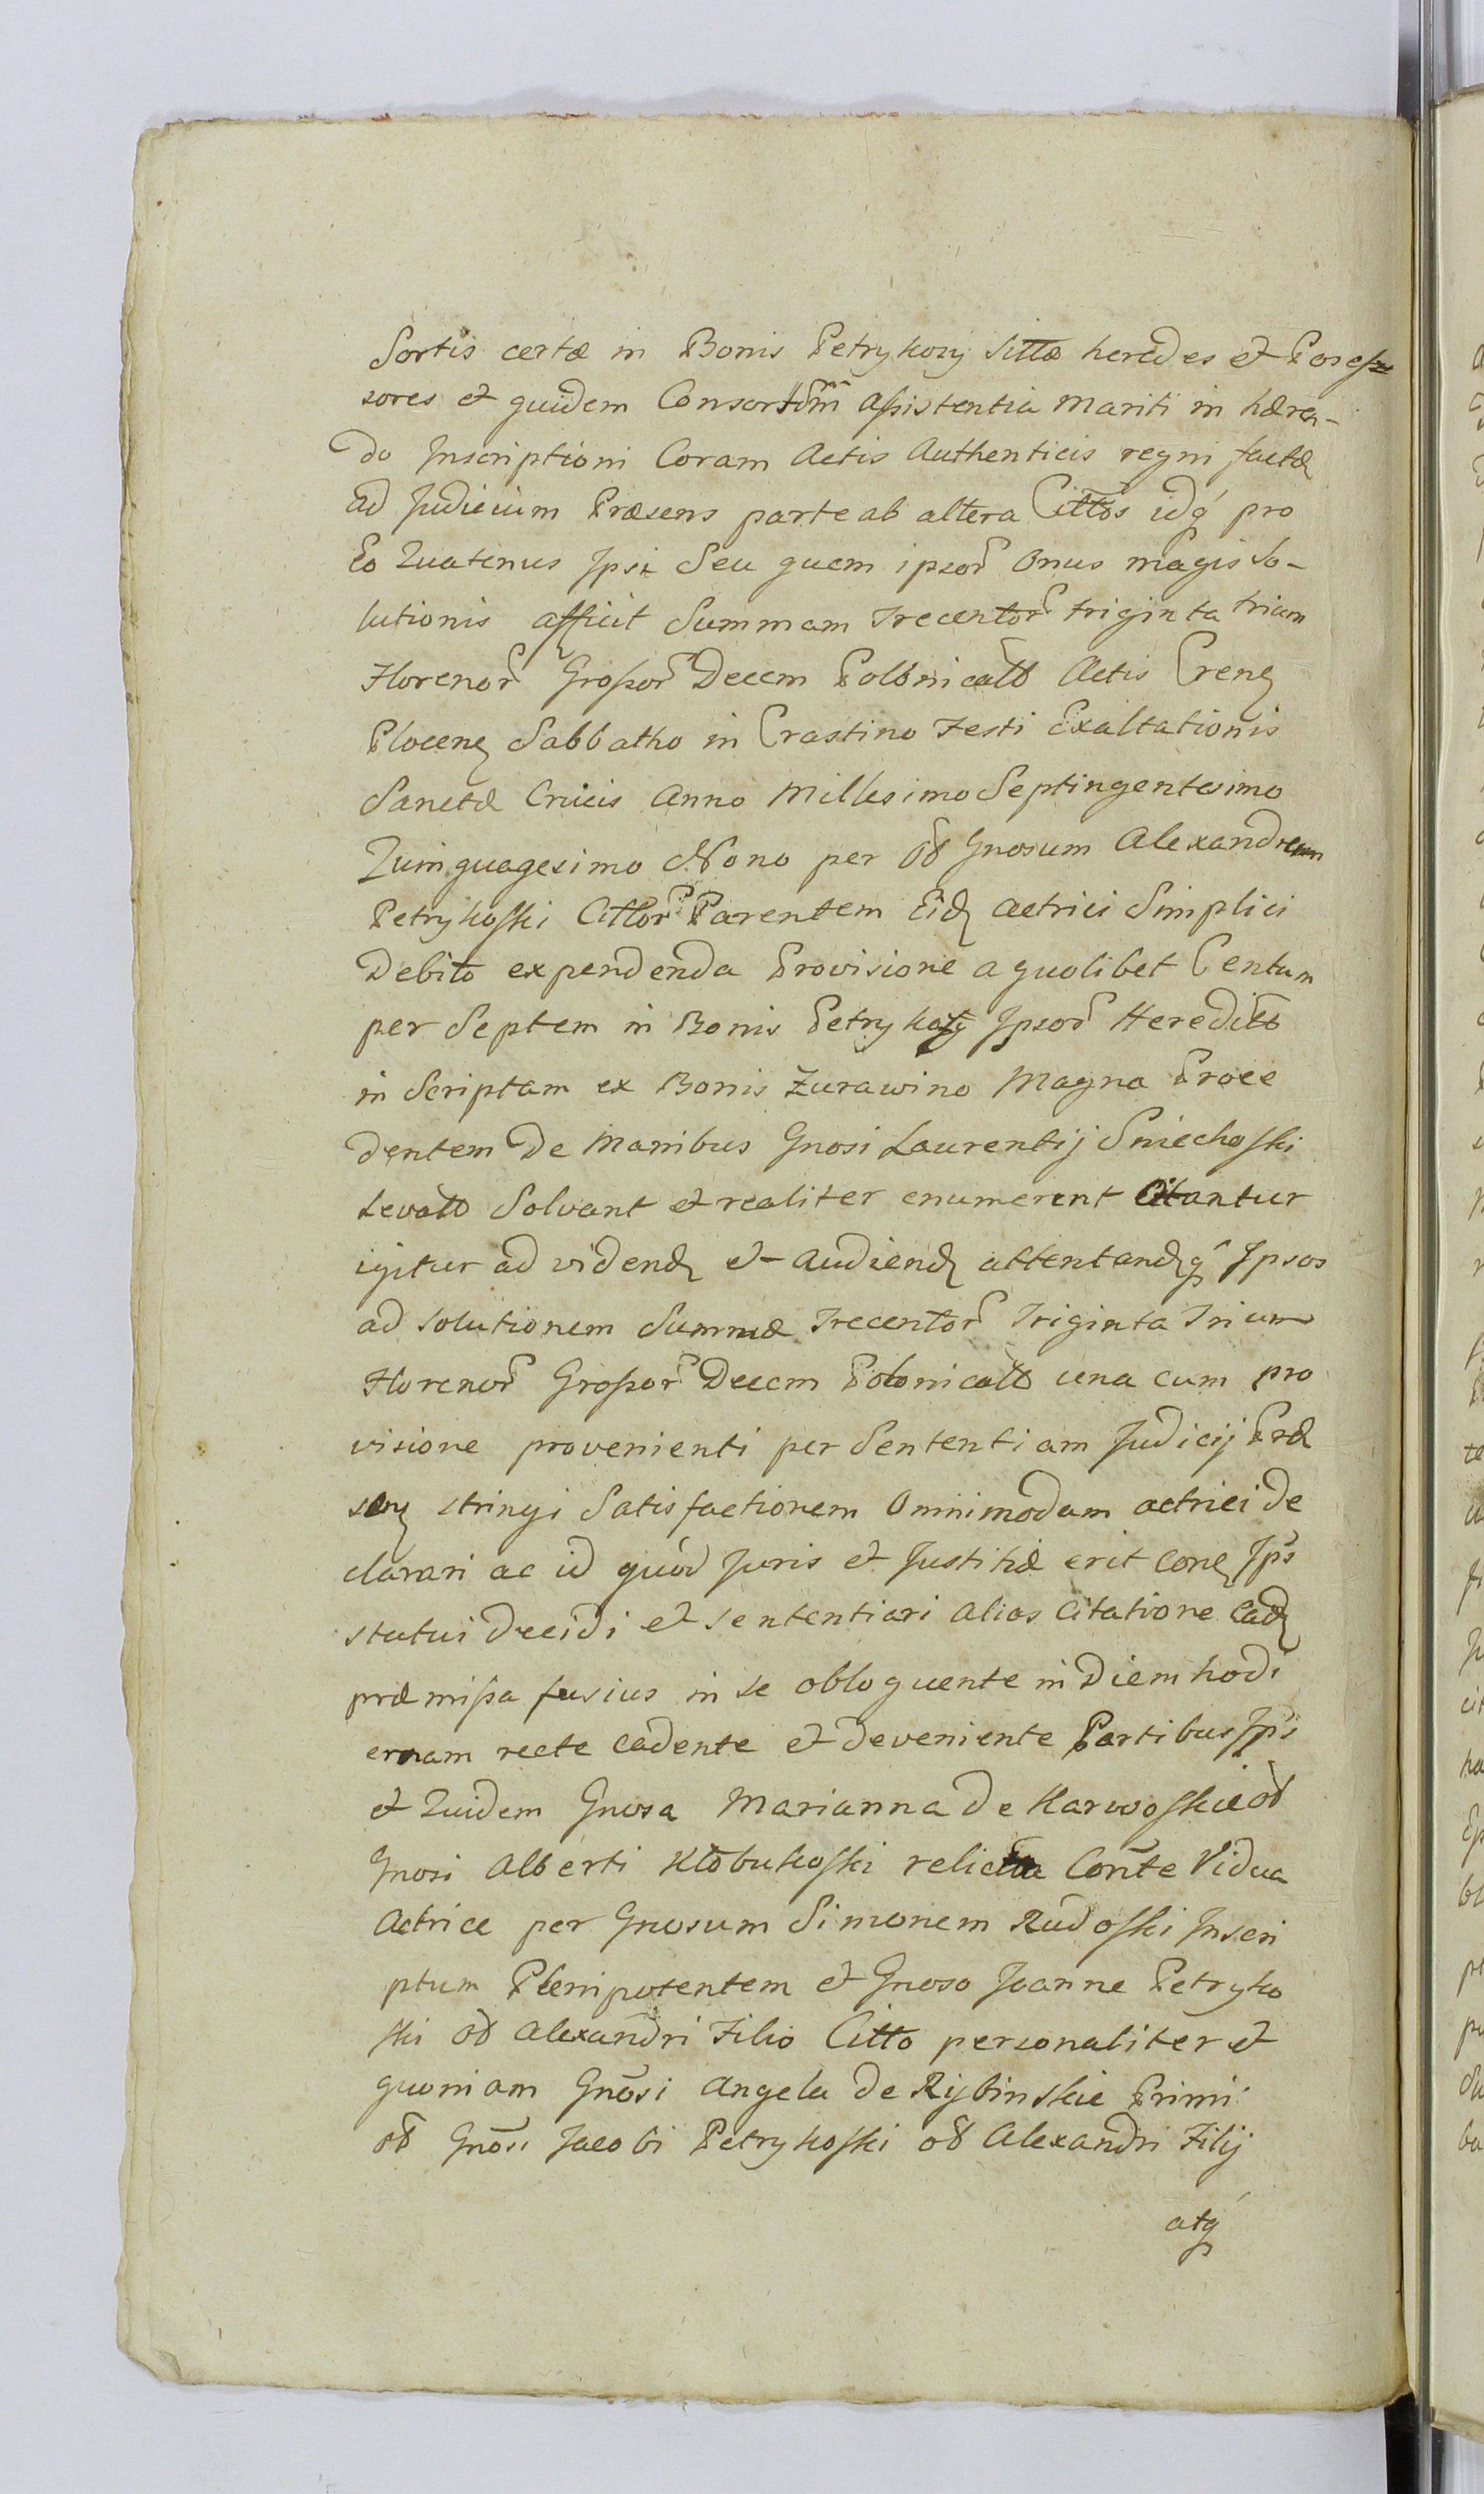 Sortis certæ in Bonis Petrykozy sittæ heredes et Possess
sores et quidem Consortem assistentia Mariti in hæren-
do Inscriptioni Coram Actis Authenticis regni factæ
ad Judicium Præsens parte ab altera Cittos idq́ pro
Eo Quatenus Ipsi Seu quem ipsor Onus magis So-
lutionis afficit Summam Trecentor triginta trium
Florenor Grossor Decem Polonicalb Actis Cren
Plocen Sabbatho in Crastino Festi Exaltationis
Sanctæ Crucis Anno Millesimo Septingentesimo
Quinquagesimo Nono per O Gnosum Alexandrum
Petrykoski Cittor Parentem Eid actrici Simplici
Debito expendenda Provisione a quolibet Centum
per Septem in Bonis Petrykozy Ipsor Heredit
in Scriptam ex Bonis Zurawino Magna Proce
dentem De Manibus Gnosi Laurentij Sniechoski
Levato Solvant et realiter enumerent Citantur
igitur ad videnđ et Audienđ attentanđq́ Ipsos
ad solutionem Summæ Trecentor Triginta Trium
Florenor Grossor Decem Polonicalb una cum pro
visione provenienti per Sententiam Judicij Præ
sen stringi Satisfactionem Omnimodam actrici De
clarari ac id quòd Juris et Justitiæ erit Con Ips
statui Decidi et sententiari alias Citatione Ead
præmissa fusius in se obloquente in Diem hodi
ernam recte Cadente et Deveniente Partibus Ips
et Quidem Gnosa Marianna De Karwoskie ođ
Gnosi Alberti Kłobukoski relicta Conte Vidua
Actrice per Gnosum Simonem Rudoski Inscri
ptum Plenipotentem et Gnoso Joanne Petryko
ski oð Alexandri Filio Citto personaliter et
quoniam Gnosi Angela De Rybinskie Primi
oð Gnosi Jacobi Petrykoski oð Alexandri Filij
atq́